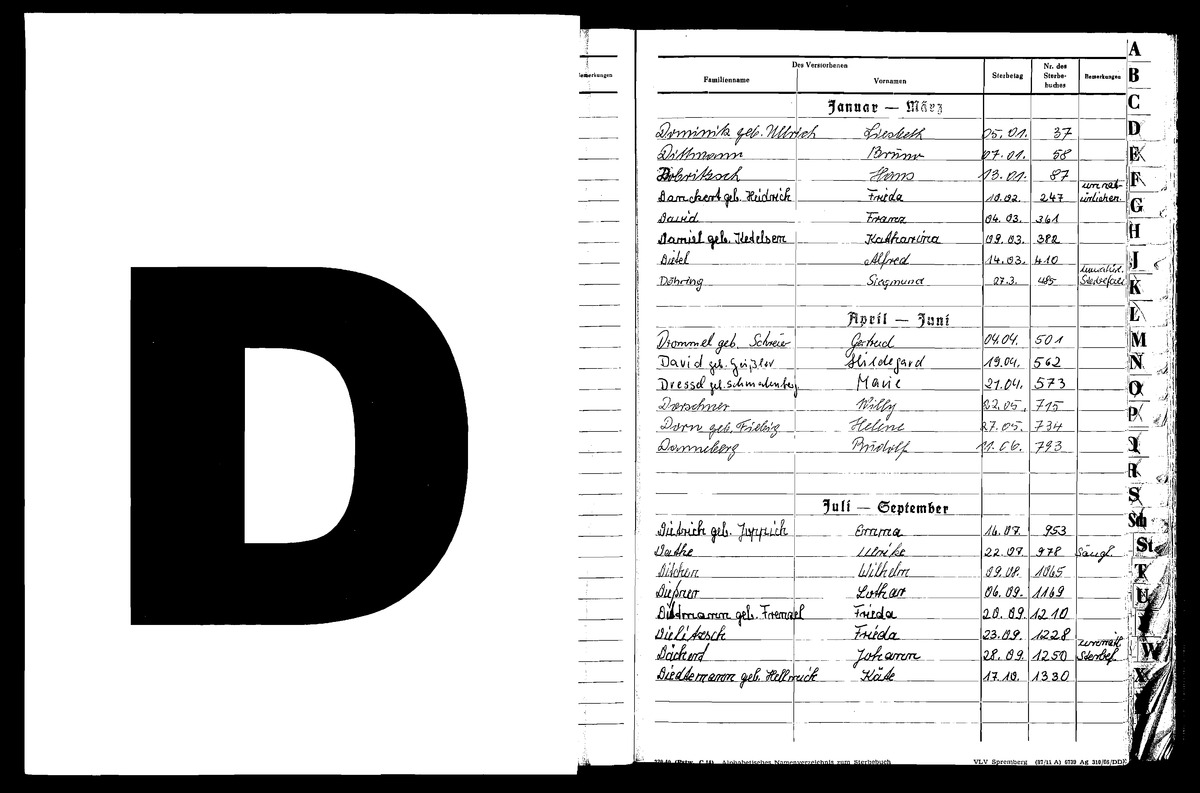 D
Bemerkungen
Des Verstorbenen
Familienname Vornamen Sterbetag Nr. des Sterbe- buches Bemerkungen
Januar — März
Dominik geb. Ullrich Liesbeth 05.01. 37
Dittmann Bruno 07.01. 58
Döbritzsch Hans 13.01. 87
Danckert geb. Heidrich Frieda 10.02. 247 unnat- ürlicher
David Franz 04.03. 361
Daniel geb. Ketelsen Katharina 09.03. 382
Alfred 14.03. 410
Döhring Siegmund 27.3. 485 Sterbefall
April — Juni
Drommel geb. Schreier Gertrud 04.04. 501
David geb. Geißler Hildegard 19.04. 562
Dressel geb. Marie 21.04. 573
Dorschner Willy 22.05. 715
Dorn geb. Fiebig Helene 27.05. 734
Danneberg Rudolf 11.06. 793
Juli — September
Dietrich geb. Emma 16.07. 953
Dathe Ulrike 22.07 978 Säugl.
Wilhelm 09.08. 1065
Dießner Lothar 06.09. 1169
geb. Frenzel Frieda 20.09. 1210
Dielitzsch Frieda 23.09. 1228
Däckert Johann 28.09. 1250 Sterbef.
geb. Käte 17.10. 1330
Alphabetisches Namenverzeichnis zum Sterbebuch VLV Spremberg
A
B
C
D
E
F
G
H
J
K
L
M
N
O
P
R
S
Sch
St
T
U
W
X